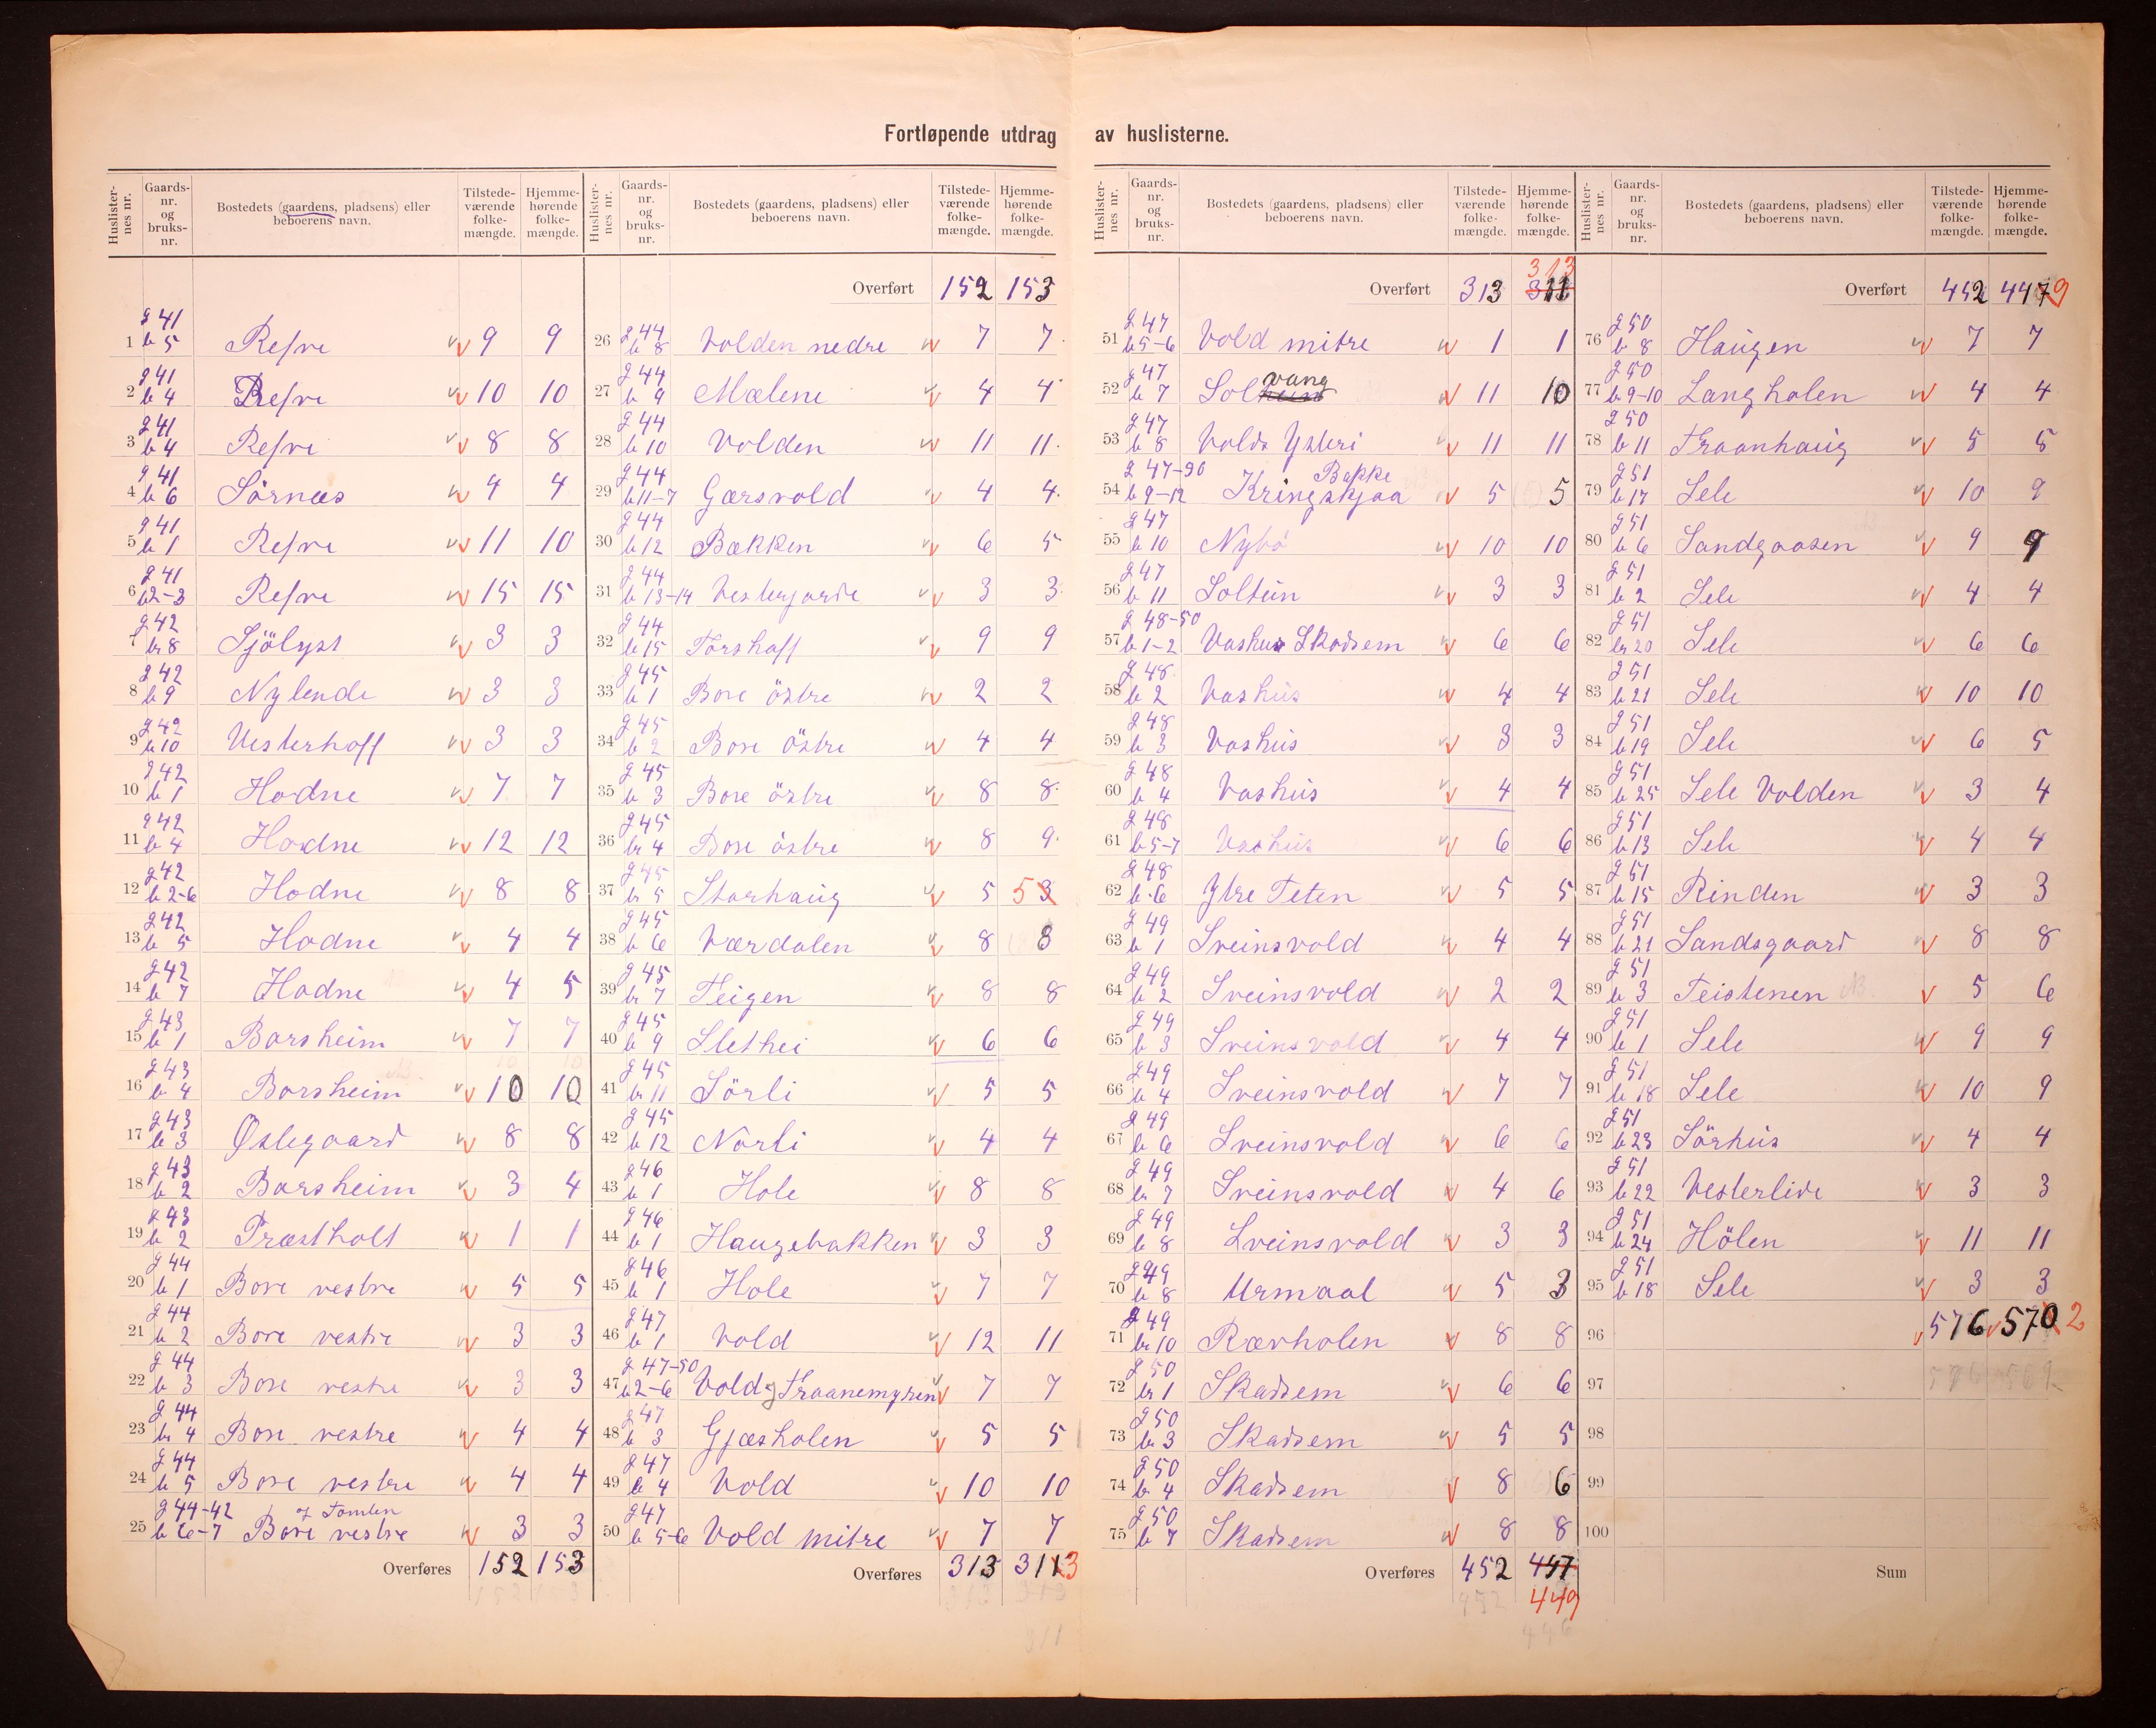 Fortløpende utdrag av huslisterne.
Huslister-nes nr. Gaards-nr. og bruks-nr. Bostedets (gaardens, pladsens) eller beboerens navn. Tilstede-værende folke-mængde. Hjemme-hørende folke-mængde.
1 g 41 b 5 Refve 9 9
2 g 41 b 4 Refve 10 10
3 g 41 b 4 Refve 8 8
4 g 41 b 6 Sörnæs 4 4
5 g 41 b 1 Refve 11 10
6 g 41 b 2-3 Refve 15 15
7 g 42 br 8 Sjölyst 3 3
8 g 42 b 9 Nylende 3 3
9 g 42 b 10 Vesterhoff 3 3
10 g 42 b 1 Hodne 7 7
11 g 42 b 4 Hodne 12 12
12 g 42 b 2-6 Hodne 8 8
13 g 42 b 5 Hodne 4 4
14 g 42 b 7 Hodne 4 5
15 g 43 b 1 Borsheim 7 7
16 g 43 b 4 Borsheim 10 10
17 g 43 b 3 Østegaard 8 8
18 g 43 b 2 Borsheim 3 4
19 g 43 b 2 Præstholt 1 1
20 g 44 b 1 Bore vestre 5 5
21 g 44 b 2 Bore vestre 3 3
22 g 44 b 3 Bore vestre 3 3
23 g 44 br 4 Bore vestre 4 4
24 g 44 b 5 Bore vestre 4 4
25 g 44-42 b 6-7 Bore vestre 3 3
Overføres 152 153
Huslister-nes nr. Gaards-nr. og bruks-nr. Bostedets (gaardens, pladsens) eller beboerens navn. Tilstede-værende folke-mængde. Hjemme-hørende folke-mængde.
Overført 152 153
26 g 44 b 8 Volden nedre 7 7
27 g 44 b 9 Mælene 4 4
28 g 44 b 10 Volden 11 11
29 g 44 b 11-7 Gærsvold 4 4
30 g 44 b 12 Bakken 6 5
31 g 44 b 13-14 Vestergarde 3 3
32 g 44 b 15 Torshoff 9 9
33 g 45 b 1 Bore östre 2 2
34 g 45 b 2 Bore östre 4 4
35 g 45 b 3 Bore östre 8 8
36 g 45 br 4 Bore östre 8 9
37 g 45 br 5 Storhaug 5 5 3
38 g 45 b 6 Værdalen 8 8
39 g 45 br 7 Teigen 8 8
40 g 45 b 9 Slethei 6 6
41 g 45 br 11 Sörli 5 5
42 g 45 b 12 Norli 4 4
43 g 46 b 1 Hole 8 8
44 g 46 b 1 Haugebakken 3 3
45 g 46 b 1 Hole 7 7
46 g 47 b 1 Vold 12 11
47 g 47-50 b 2-6 Vold og Traanemyren 7 7
48 g 47 b 3 Gjæsholen 5 5
49 g 47 b 4 Vold 10 10
50 g 47 b 5-6 Vold mitre 7 7
Overføres 313 311 3
Huslister-nes nr. Gaards-nr. og bruks-nr. Bostedets (gaardens, pladsens) eller beboerens navn. Tilstede-værende folke-mængde. Hjemme-hørende folke-mængde.
313
Overført 313 311
51 g 47 b 5-6 Vold mitre 1 1
52 g 47 b 7 Solvang 11 10
53 g 47 b 8 Volds Ysteri 11 11
54 g 47-90 b 9-12 Kringskjaa Bakke 5 5
55 g 47 b 10 Nybö 10 10
56 g 47 b 11 Soltun 3 3
57 g 48-50 b 1-2 Vashus Skadsem 6 6
58 g 48 b 2 Vashus 4 4
59 g 48 b 3 Vashus 3 3
60 g 48 b 4 Vashus 4 4
61 g 48 b 5-7 Vashus 6 6
62 g 48 b 6 Ytre Teten 5 5
63 g 49 b 1 Sveinsvold 4 4
64 g 49 b 2 Sveinsvold 2 2
65 g 49 b 3 Sveinsvold 4 4
66 g 49 b 4 Sveinsvold 7 7
67 g 49 b 6 Sveinsvold 6 6
68 g 49 br 7 Sveinsvold 4 6
69 g 49 b 8 Sveinsvold 3 3
70 g 49 b 8 Urmaal 5 3
71 g 49 br 10 Rævholen 8 8
72 g 50 br 1 Skadsem 6 6
73 g 50 br 3 Skadsem 5 5
74 g 50 b 4 Skadsem 8 6
75 g 50 b 7 Skadsem 8 8
Overføres 452 447
449
446
Huslister-nes nr. Gaards-nr. og bruks-nr. Bostedets (gaardens, pladsens) eller beboerens navn. Tilstede-værende folke-mængde. Hjemme-hørende folke-mængde.
Overført 452 447 9
76 g 50 b 8 Haugen 7 7
77 g 50 b 9-10 Langholen 4 4
78 g 50 b 11 Traanhaug 5 5
79 g 51 b 17 Sele 10 9
80 g 51 b 6 Sandgaasen 9 9
81 g 51 b 2 Sele 4 4
82 g 51 br 20 Sele 6 6
83 g 51 b 21 Sele 10 10
84 g 51 b 19 Sele 6 5
85 g 51 b 25 Sele Volden 3 4
86 g 51 b 13 Sele 4 4
87 g 51 b 15 Rinden 3 3
88 g 51 b 21 Sandsgaard 8 8
89 g 51 b 3 Teistenen 5 6
90 g 51 b 1 Sele 9 9
91 g 51 b 18 Sele 10 9
92 g 51 b 23 Sörhus 4 4
93 g 51 b 22 Vesterlide 3 3
94 g 51 b 24 Hölen 11 11
95 g 51 b 18 Sele 3 3
96 576 570 2
97
98
99
100
Sum